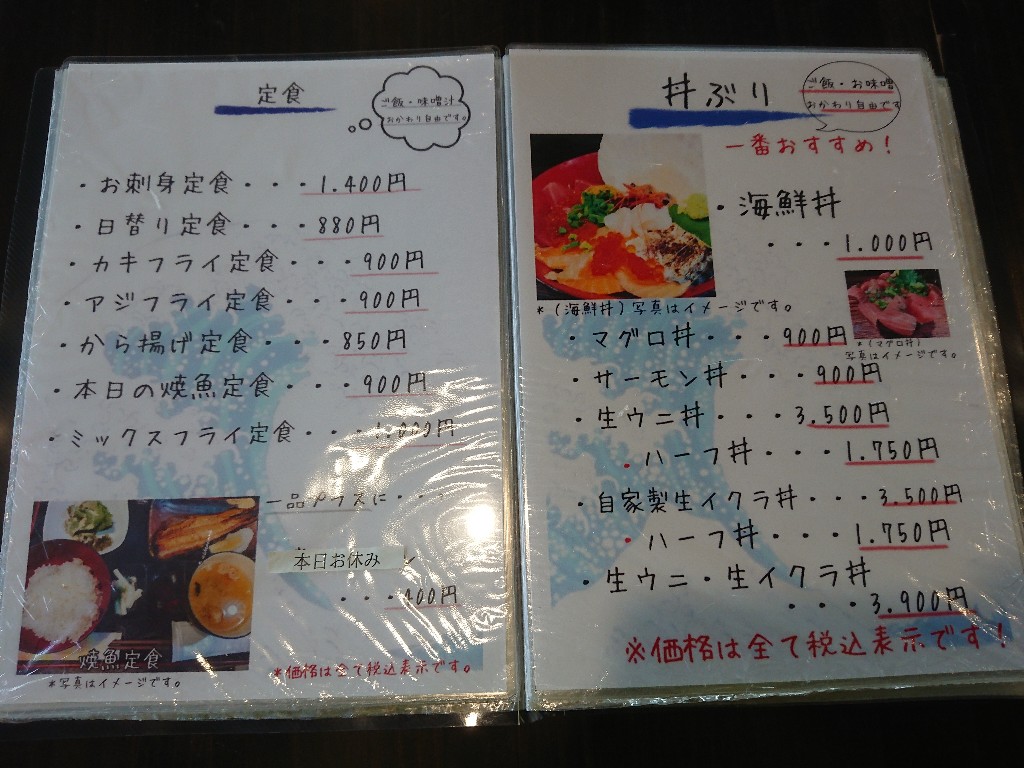 定食
ご飯・味噌汁
おかわり自由です。
・お刺身定食・・・1.400円
・日替り定食・・・880円
・カキフライ定食・・・900円
・アジフライ定食・・・900円
・から揚げ定食・・・850円
・本日の焼魚定食・・・900円
・ミックスフライ定食・・・1.000円
一品プラスに・・・
本日お休み
・・・400円
焼魚定食
*写真はイメージです。
*価格は全て税込表示です。
丼ぶり
ご飯・お味噌
おかわり自由です
一番おすすめ!
・海鮮丼
・・・1.000円
*(海鮮丼)写真はイメージです。
・マグロ丼・・・900円
*(マグロ丼)
写真はイメージです。
・サーモン丼・・・900円
・生ウニ丼・・・3.500円
・ハーフ丼・・・1.750円
・自家製生イクラ丼・・・3.500円
・ハーフ丼・・・1.750円
・生ウニ・生イクラ丼
・・・3.900円
※価格は全て税込表示です!